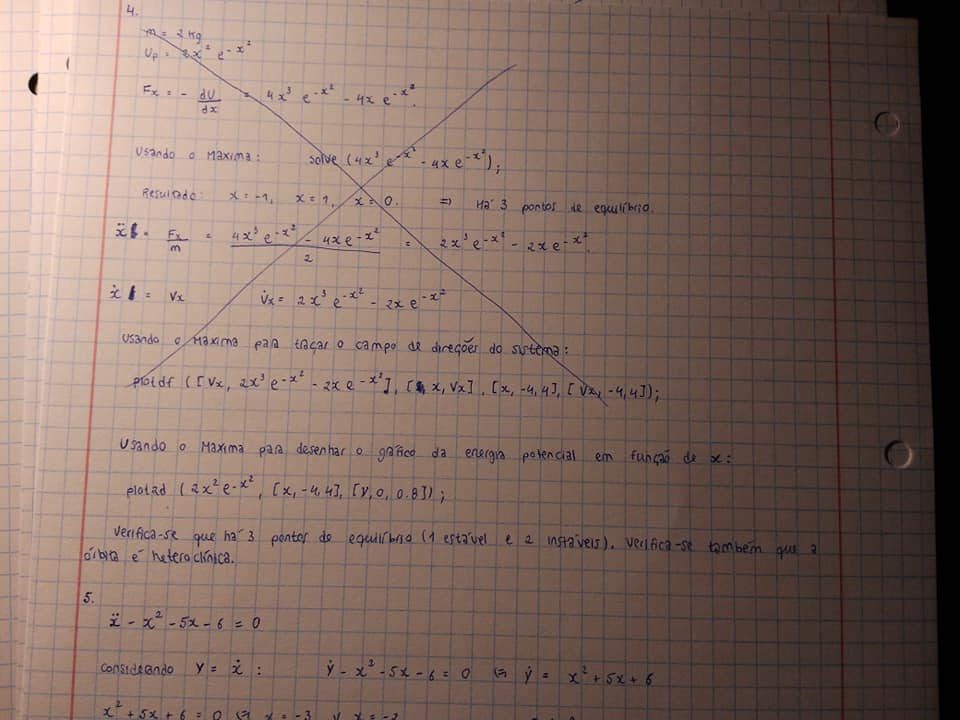 4.
m = 2 kg
Up = 2x² e^-x²
Fx = - dU/dx = 4x³ e^-x² - 4x e^-x².
Usando o Maxima: solve (4x³ e^-x² - 4x e^-x²);
Resultado: x = -1, x = 1, x = 0. ⇒ Há 3 pontos de equilíbrio.
ẍ = Fx/m = (4x³ e^-x² - 4x e^-x²)/2 = 2x³ e^-x² - 2x e^-x².
ẋ = Vx V̇x = 2x³ e^-x² - 2x e^-x²
Usando o Maxima para traçar o campo de direções do sistema:
plotdf ([Vx, 2x³ e^-x² - 2x e^-x²], [x, Vx], [x, -4, 4], [Vx, -4, 4]);
Usando o Maxima para desenhar o gráfico da energia potencial em função de x:
plot2d (2x² e^-x², [x, -4, 4], [y, 0, 0.8]);
Verifica-se que há 3 pontos de equilíbrio (1 estável e 2 instáveis). Verifica-se também que a
órbita é heteroclínica.
5.
ẍ - x² - 5x - 6 = 0
Considerando y = ẋ : ẏ - x² - 5x - 6 = 0 ⇔ ẏ = x² + 5x + 6
x² + 5x + 6 = 0 ⇔ x = -3 ∨ x = -2